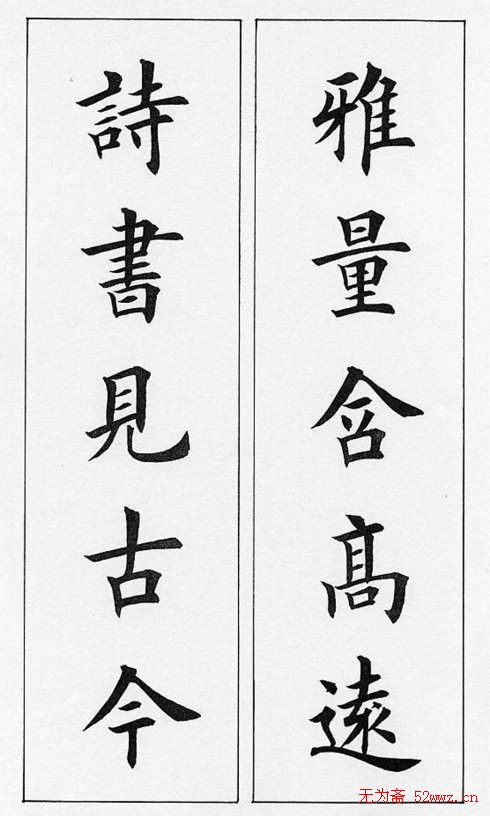 雅量含髙遠
詩書見古今
无为斋 52wwz.cn